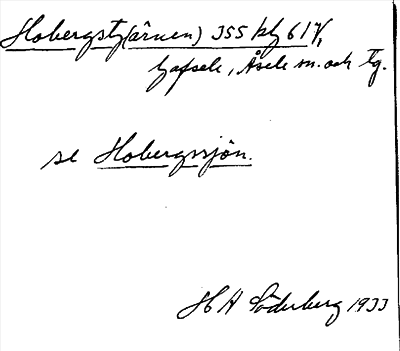 Hobergstj(ärnen) 355 kbl 61 V,
Gafsele, Åsele sn. och tg.
se Hobergssjön.
H A Söderberg 1933